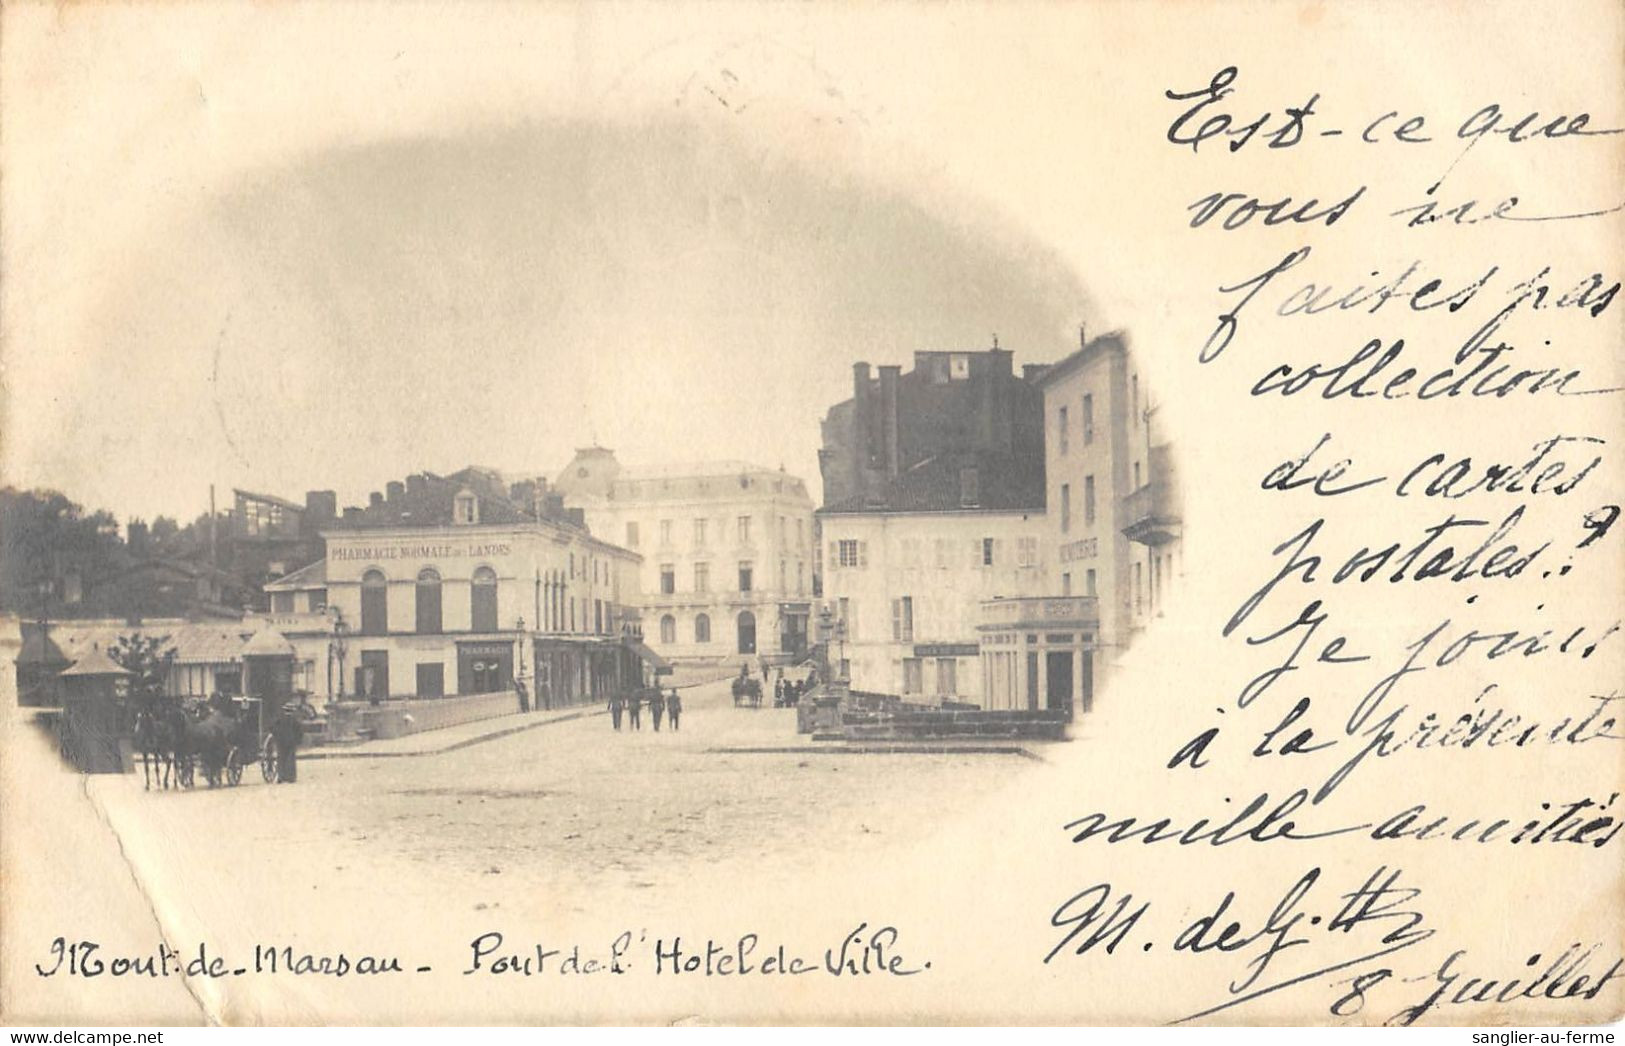 Est-ce que
vous ne
faites pas
collection
de cartes
postales ?
Je joins
à la présente
mille amitiés
M. de G.
8 Juillet
PHARMACIE NORMALE DES LANDES
PHARMACIE
Mont-de-Marsan - Pont de l'Hotel de Ville.
sanglier-au-ferme